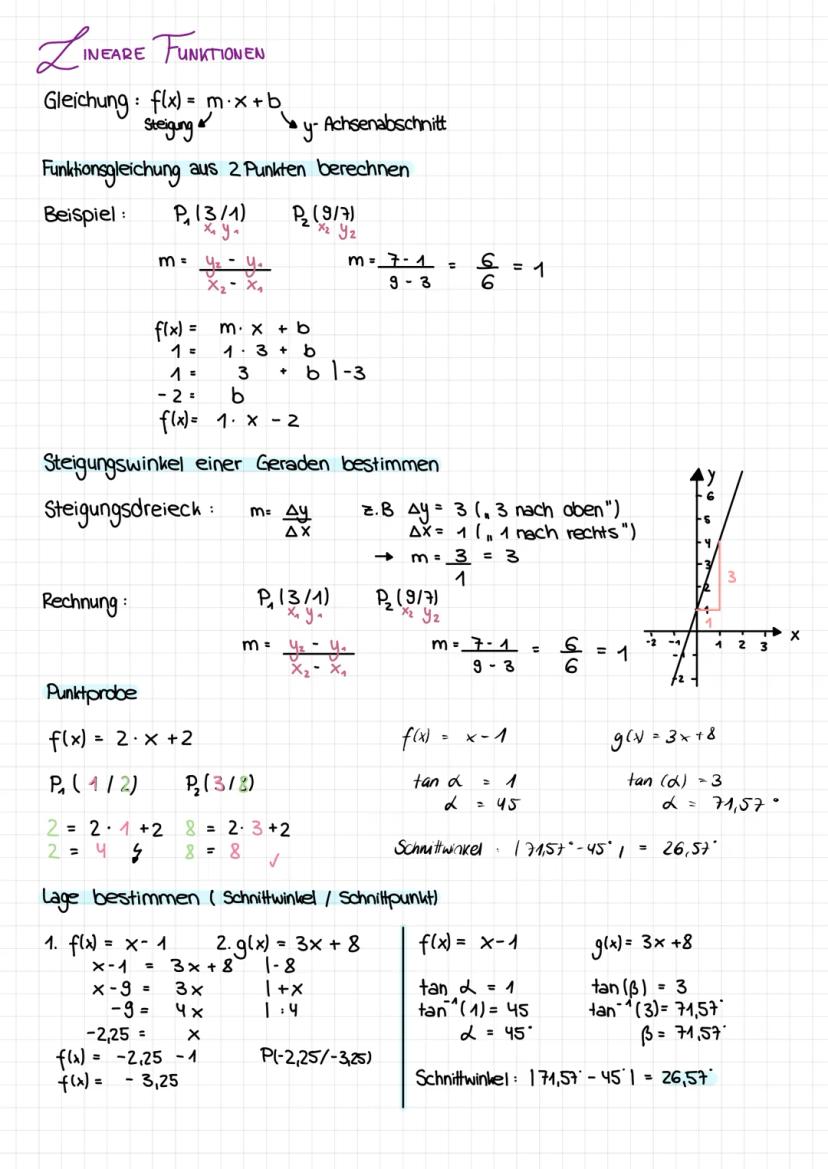 LINEARE FUNKTIONEN
Gleichung: f(x) = m·x + b
Steigung y-Achsenabschnitt
Funktionsgleichung aus 2 Punkten berechnen
Beispiel: P₁(3/1) P₂(9/7)
x₁ y₁ x₂ y₂
m = (y₂ - y₁)/(x₂ - x₁) m = (7-1)/(9-3) = 6/6 = 1
f(x) = m· x + b
1 = 1 · 3 + b
1 = 3 + b |-3
-2 = b
f(x) = 1· x - 2
Steigungswinkel einer Geraden bestimmen
Steigungsdreieck: m = Δy/Δx z.B Δy = 3 („3 nach oben")
Δx = 1 („1 nach rechts")
→ m = 3/1 = 3
y
6
5
4
3
2
1
3
1
-2 -1 1 2 3 x
-1
-2
Rechnung: P₁(3/1) P₂(9/7)
x₁ y₁ x₂ y₂
m = (y₂ - y₁)/(x₂ - x₁) m = (7-1)/(9-3) = 6/6 = 1
Punktprobe
f(x) = 2 · x + 2
P₁(1/2) P₂(3/8)
2 = 2 · 1 + 2 8 = 2· 3 + 2
2 = 4 ↯ 8 = 8 ✓
f(x) = x - 1 g(x) = 3x + 8
tan α = 1 tan (α) = 3
α = 45 α = 71,57°
Schnittwinkel: |71,57° - 45°| = 26,57°
Lage bestimmen (Schnittwinkel / Schnittpunkt)
1. f(x) = x - 1 2. g(x) = 3x + 8
x - 1 = 3x + 8 |-8
x - 9 = 3x |+x
-9 = 4x |:4
-2,25 = x
f(x) = -2,25 - 1 P(-2,25/-3,25)
f(x) = - 3,25
f(x) = x - 1 g(x) = 3x + 8
tan α = 1 tan(β) = 3
tan⁻¹(1) = 45 tan⁻¹(3) = 71,57°
α = 45° β = 71,57°
Schnittwinkel: |71,57° - 45°| = 26,57°